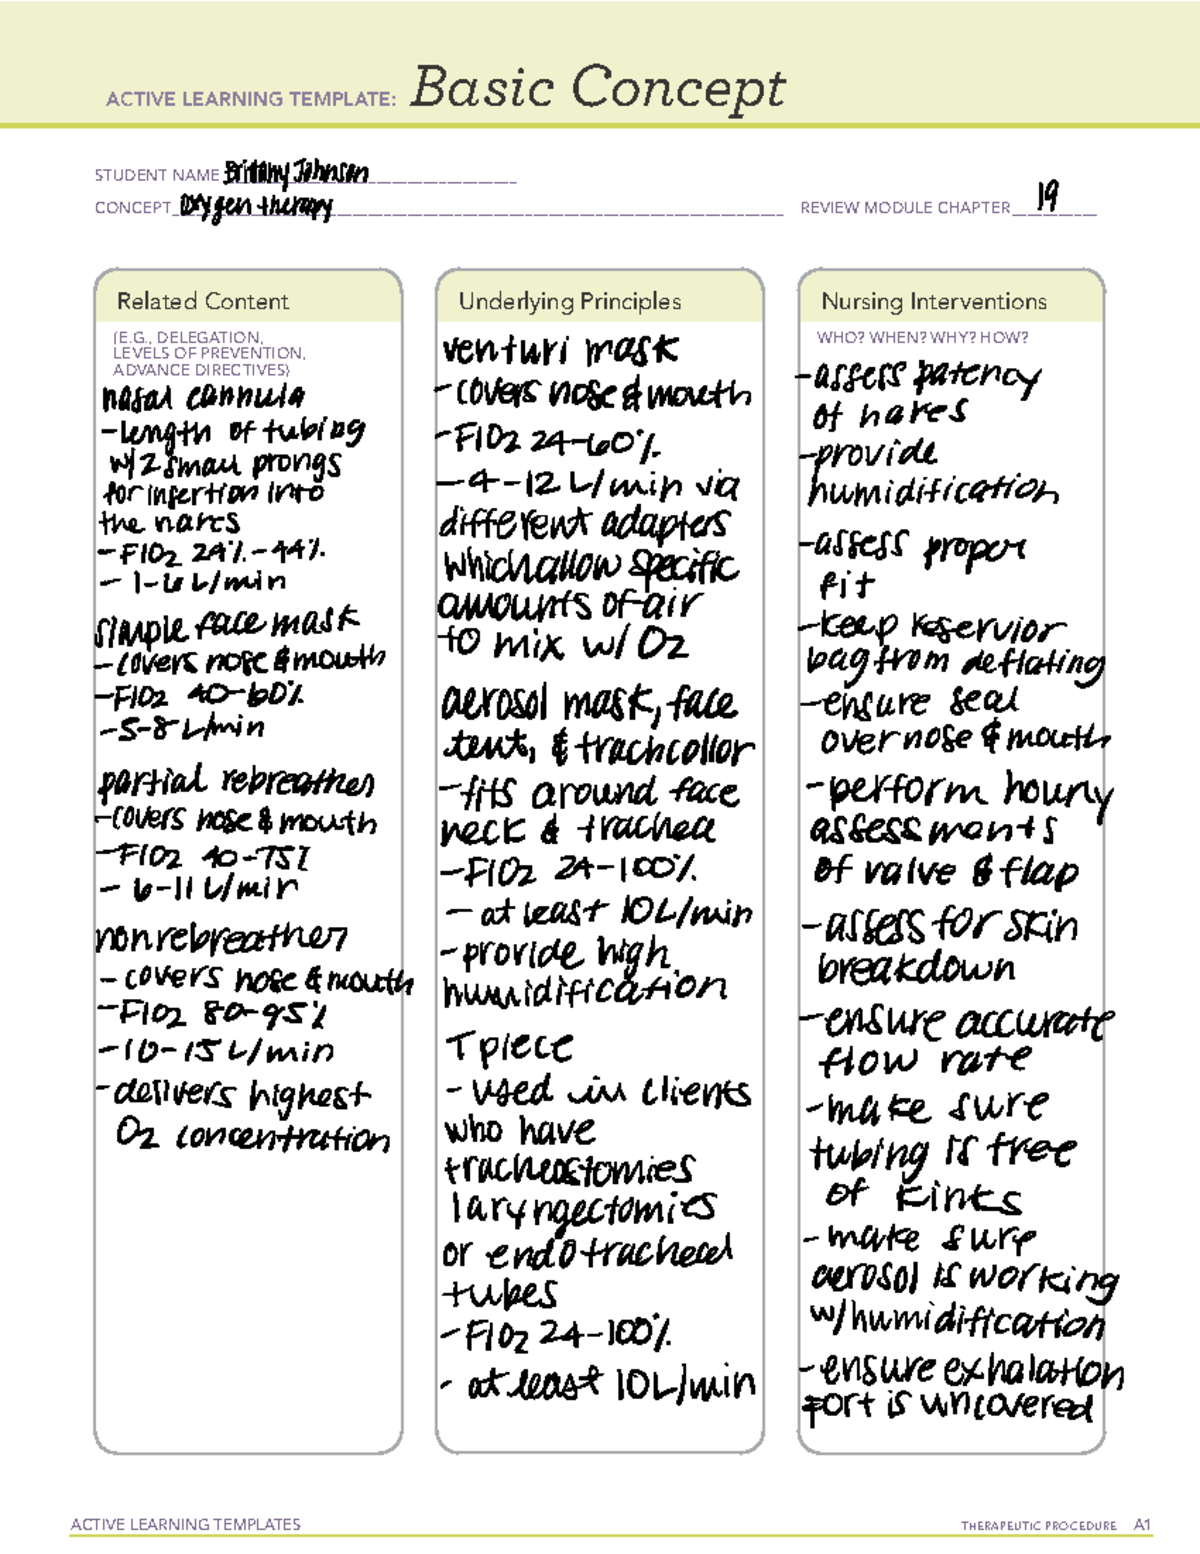 ACTIVE LEARNING TEMPLATE: Basic Concept
STUDENT NAME Brittany Johnson
CONCEPT Oxygen therapy
REVIEW MODULE CHAPTER 19
Related Content
(E.G., DELEGATION,
LEVELS OF PREVENTION,
ADVANCE DIRECTIVES)
nasal cannula
-length of tubing
w/2 small prongs
for insertion into
the nares
-FIO2 24%-44%
- 1-6 L/min
simple face mask
-covers nose & mouth
-FIO2 40-60%
-5-8 L/min
partial rebreather
-covers nose & mouth
-FIO2 40-75%
- 6-11 L/min
nonrebreather
- covers nose & mouth
-FIO2 80-95%
-10-15 L/min
-delivers highest
O2 concentration
Underlying Principles
venturi mask
-covers nose & mouth
-FIO2 24-60%
-4-12 L/min via
different adapters
which allow specific
amounts of air
to mix w/ O2
aerosol mask, face
tent, & trach collor
-fits around face
neck & trachea
-FIO2 24-100%
- at least 10 L/min
-provide high
humidification
T piece
- used in clients
who have
tracheostomies
laryngectomies
or endotracheal
tubes
-FIO2 24-100%
- at least 10 L/min
Nursing Interventions
WHO? WHEN? WHY? HOW?
-assess patency
of nares
-provide
humidification
-assess proper
fit
-keep reservior
bag from deflating
-ensure seal
over nose & mouth
-perform hourly
assessments
of valve & flap
-assess for skin
breakdown
-ensure accurate
flow rate
-make sure
tubing is free
of kinks
-make sure
aerosol is working
w/humidification
-ensure exhalation
port is uncovered
ACTIVE LEARNING TEMPLATES
THERAPEUTIC PROCEDURE A1